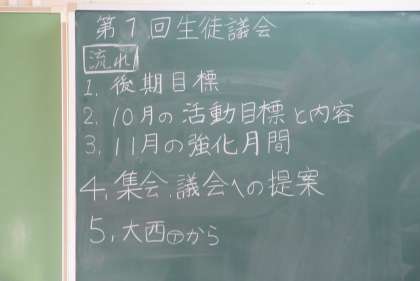 第7回生徒議会
流れ
1. 後期目標
2. 10月の活動目標と内容
3. 11月の強化月間
4. 集会、議会への提案
5. 大西㊦から